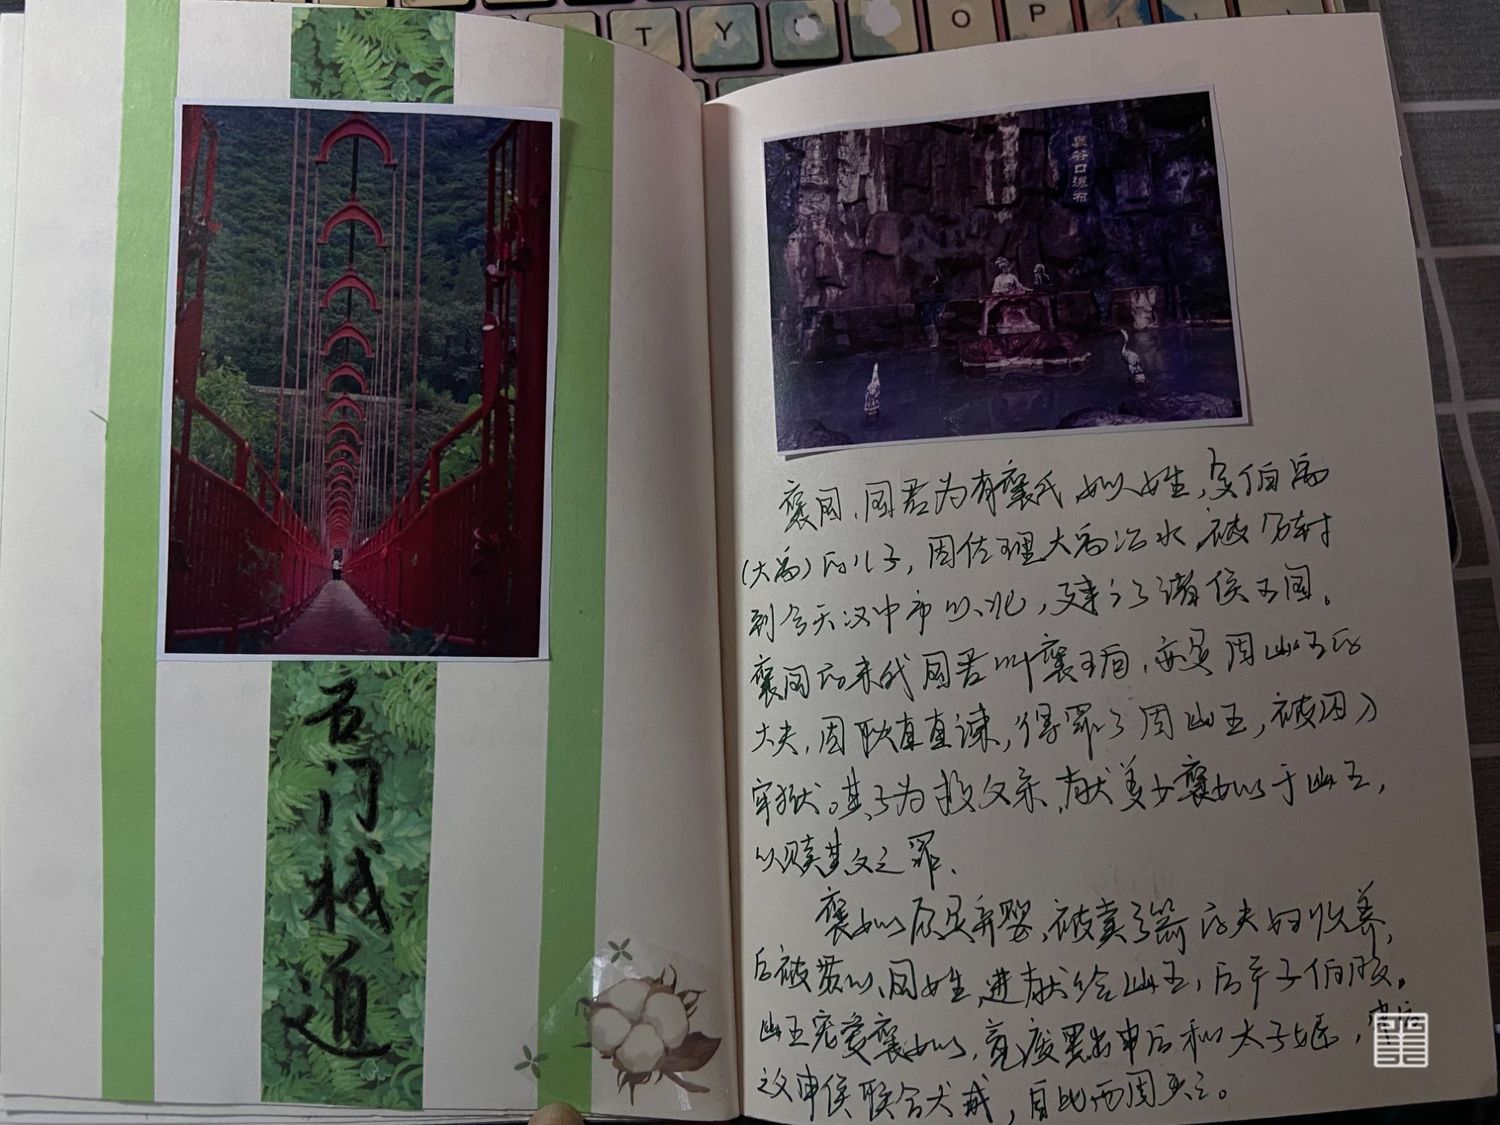 T Y U I O P
石门栈道
褒谷口瀑布
褒国,国君为有褒氏,姒姓,夏伯禹
(大禹)的儿子,因佐理大禹治水,被分封
到今天汉中市以北,建立了诸侯国。
褒国的末代国君叫褒珦,亦是周幽王的
大夫,因耿直直谏,得罪了周幽王,被囚入
牢狱。其子为救父亲,献美女褒姒于幽王,
以赎其父之罪。
褒姒原是弃婴,被卖了箭的夫妇收养,
后被 以国姓,进献给幽王,后年子伯服。
幽王宠爱褒姒,竟废黜申后和太子 ,申后
之父申侯联合犬戎,自此西周灭亡。